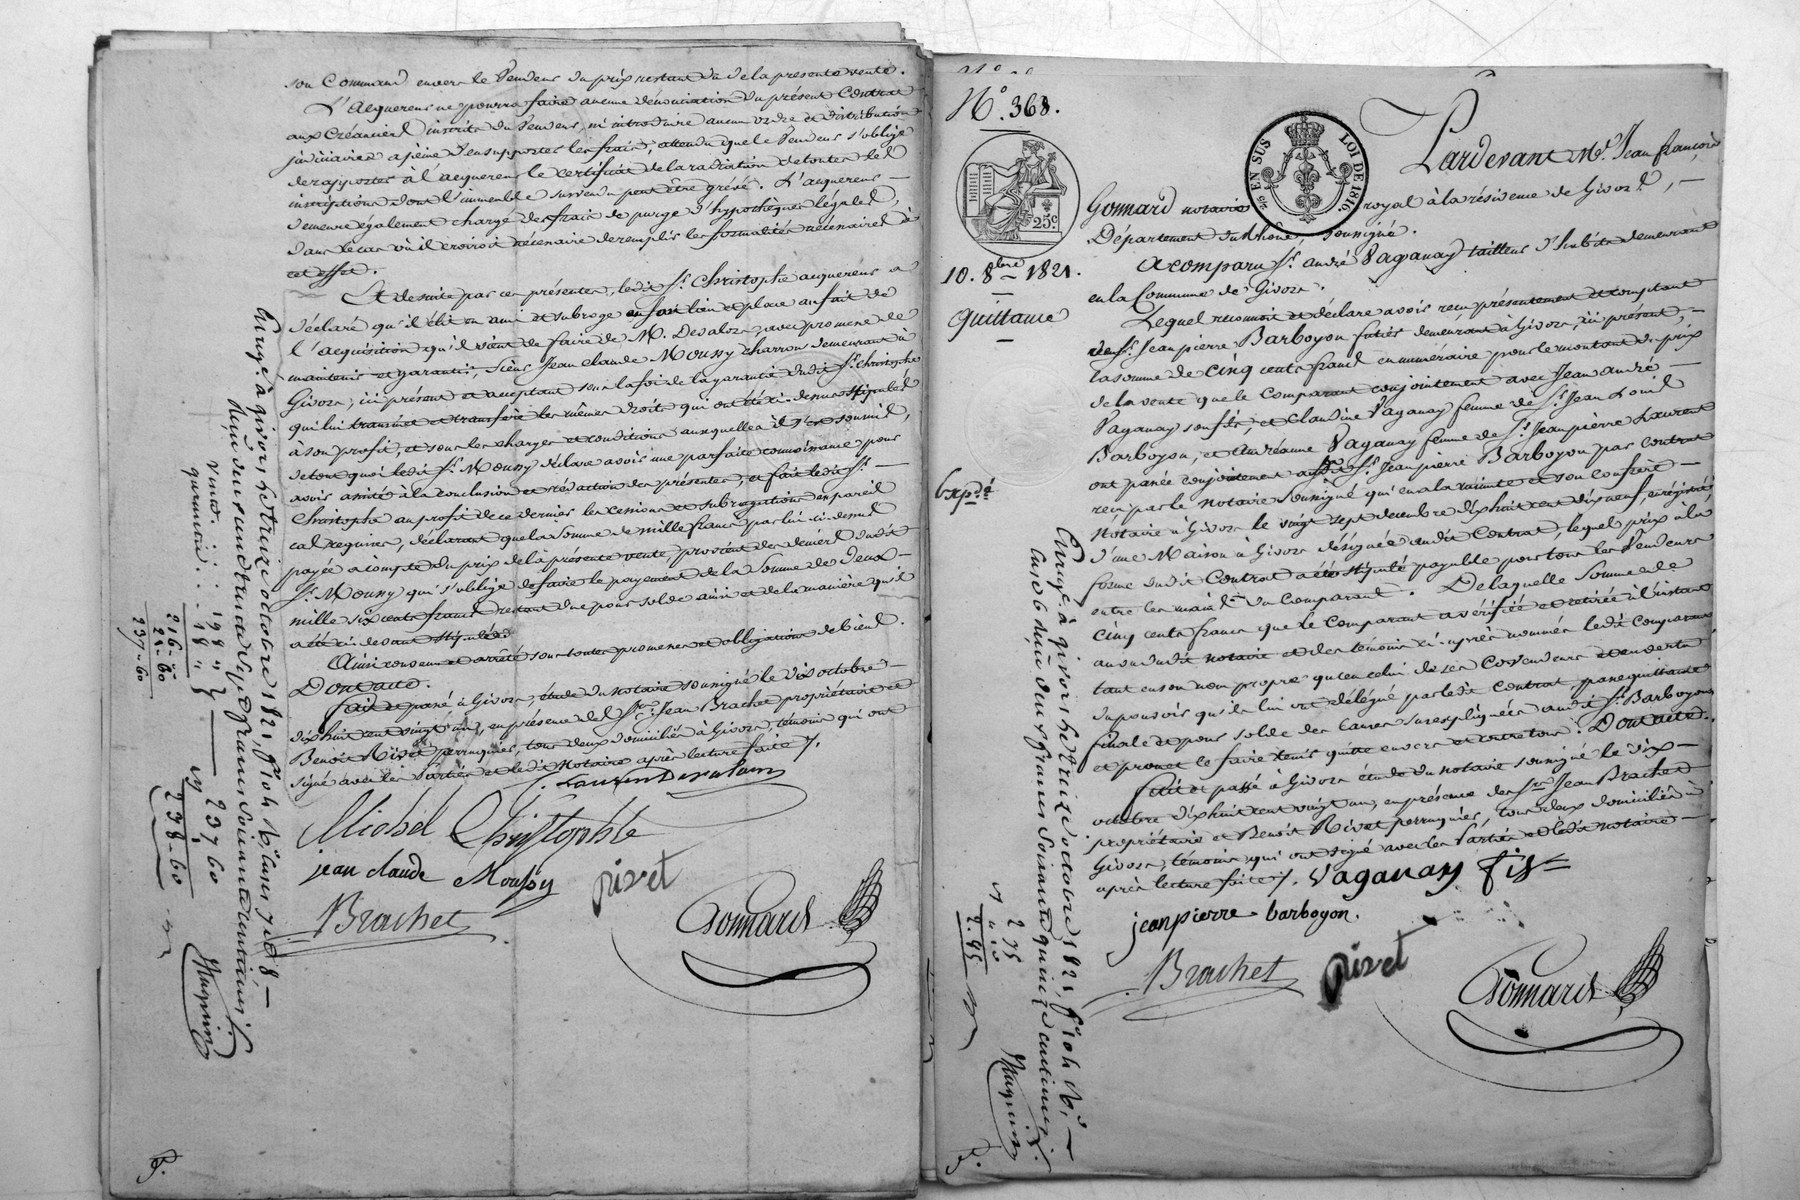 son Command envers le Vendeur du prix restant dû de la présente vente.
L'acquereur ne pourra faire aucune dénonciation du présent Contrat
aux Créanciers inscrits du Vendeur, ni introduire aucun ordre et distribution
judiciaires à peine d'en supporter les frais, attendu que le Vendeur s'oblige
de rapporter à l'acquereur le certificat de la radiation de toutes les
inscriptions dont l'immeuble survendu peut être grévé. L'acquereur
demeure également chargé des frais de purge d'hypothèques légales,
dans le cas où il croiroit nécessaire de remplir les formalités nécessaires à
cet effet.
Et de suite par ces présentes, ledit Sr. Christophe acquereur a
déclaré qu'il élit en ami et subroge en son lieu et place au fait de
l'acquisition qu'il vient de faire de M. Devalors, avec promesse de
maintenir et garantir, Sieur Jean Claude Moussy charron demeurant à
Givors, ici présent et acceptant sous la foi de la garantie dudit Sr. Christophe
qui lui transmet et transfère les mêmes droits qui ont été ci-dessus stipulés
à son profit, et sous les charges et conditions auxquelles il s'est soumis,
de tout quoi ledit Sr. Moussy déclare avoir une parfaite connoissance pour
avoir assisté à la conclusion et rédaction des présentes, et fait ledit Sr.
Christophe au profit de ce dernier les cessions et subrogations en pareil
cas requises, déclarant que la somme de mille francs par lui ci-dessus
payée à compte du prix de la présente vente, provient des deniers dudit
Sr. Moussy qui s'oblige de faire le payement de la Somme de deux
mille six cents francs restant due pour solde ainsi et de la manière qu'il
a été ci-devant stipulé.
Ainsi convenu et arrêté sous toutes promesses et obligations de biens.
Dont acte.
fait et passé à Givors, étude du notaire soussigné le dix octobre
dix huit cent vingt un, en présence des Srs. Jean Brachet propriétaire et
Benoît Rivet perruquier, tous deux domiciliés à Givors, témoins qui ont
signé avec les Parties et ledit Notaire après lecture faite.
Michel Christophle
jean claude Moussy
rivet
Brachet
Gonnard
Enreg.é à givors le treize octobre 1821, fo. 104
Reçu deux cent trente sept francs soixante centimes
vente
garantie
198
18
216
21-60
237-60
237 60
238-60
N.o 368.
EN SUS
LOI DE 1816.
25.c
10. 8bre 1821.
Quittance
Expé.é
Pardevant Me. Jean françois
Gonnard notaire royal à la résidence de Givors,
Département du Rhône, Soussigné.
A comparu Sr. andré Vaganay tailleur d'habits demeurant
en la Commune de Givors.
Lequel reconnoit et déclare avoir reçu présentement et comptant
de Sr. Jean pierre Barboyon futier demeurant à Givors, ici présent,
la somme de cinq cents francs en numéraire pour le montant du prix
de la vente que le Comparant conjointement avec Jean andré
Vaganay son fils, et Claudine Vaganay femme de Sr. Jean Louis
Barboyon, et andréanne Vaganay femme de Sr. Jean pierre Laurent
ont passée conjointement audit Sr. Jean pierre Barboyon par contrat
reçu par le notaire soussigné qui en a la minute et son confrère
Notaire à Givors le vingt sept décembre dix huit cent dix neuf, enregistré
d'une Maison à Givors désignée audit Contrat, lequel prix à la
forme dudit Contrat a été stipulé payable pour tous les Vendeurs
entre les mains du Comparant. De laquelle Somme de
cinq cents francs que le Comparant a vérifiée et retirée à l'instant
au vu dudit notaire et des témoins ci-après nommés ledit Comparant
tant en son nom propre qu'en celui de ses Covendeurs et en vertu
du pouvoir qu'ils lui ont délégué par ledit Contrat passe quittance
finale et pour solde des causes sus expliquées audit Sr. Barboyon
et promet le faire tenir quitte envers et contre tous. Dont acte.
fait et passé à Givors étude du notaire soussigné le dix
octobre dix huit cent vingt un, en présence des Srs. Jean Brachet
propriétaire et Benoît Rivet perruquier, tous deux domiciliés à
Givors, témoins, qui ont signé avec les Parties et ledit notaire
après lecture faite. Vaganay
jean pierre barboyon.
Brachet
rivet
Gonnard
Enreg.é à givors le treize octobre 1821, fo. 104